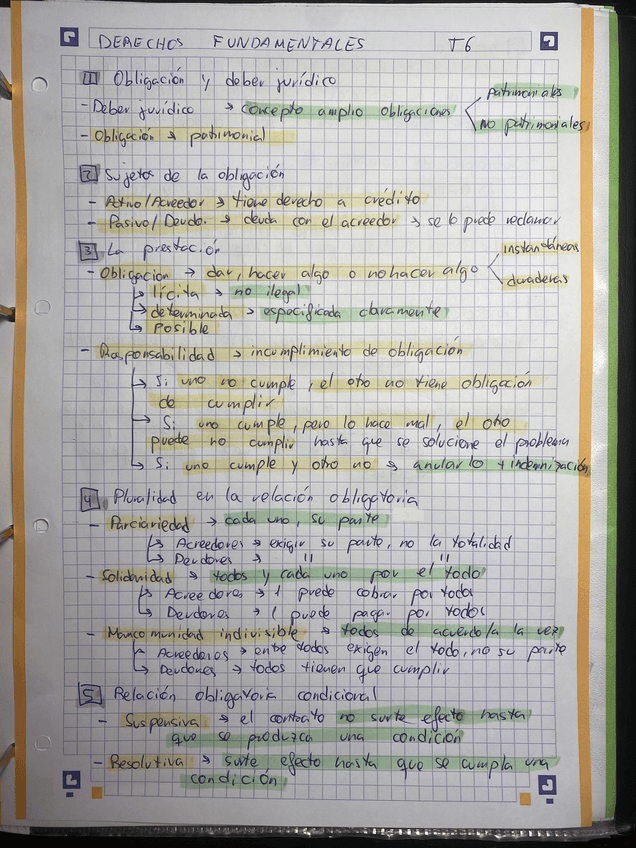 DERECHOS FUNDAMENTALES T6
1 Obligación y deber jurídico
- Deber jurídico → concepto amplio obligaciones
patrimoniales
no patrimoniales
- Obligación → patrimonial
2 Sujetos de la obligación
- Activo/Acreedor → tiene derecho a crédito
- Pasivo/Deudor → deuda con el acreedor → se lo puede reclamar
3 La prestación
- Obligación → dar, hacer algo o no hacer algo
instantáneas
duraderas
↳ lícita → no ilegal
↳ determinada → especificada claramente
↳ posible
- Responsabilidad → incumplimiento de obligación
↳ Si uno no cumple, el otro no tiene obligación
de cumplir
↳ Si uno cumple, pero lo hace mal, el otro
puede no cumplir hasta que se solucione el problema
↳ Si uno cumple y otro no → anularlo + indemnización
4 Pluralidad en la relación obligatoria
- Parciariedad → cada uno, su parte
↳ Acreedores → exigir su parte, no la totalidad
↳ Deudores → " "
- Solidaridad → todos y cada uno por el todo
↳ Acreedores → 1 puede cobrar por todos
↳ Deudores → 1 puede pagar por todos
- Mancomunidad indivisible → todos de acuerdo/a la vez
↳ Acreedores → entre todos exigen el todo, no su parte
↳ Deudores → todos tienen que cumplir
5 Relación obligatoria condicional
- Suspensiva → el contrato no surte efecto hasta
que se produzca una condición
- Resolutiva → surte efecto hasta que se cumpla una
condición